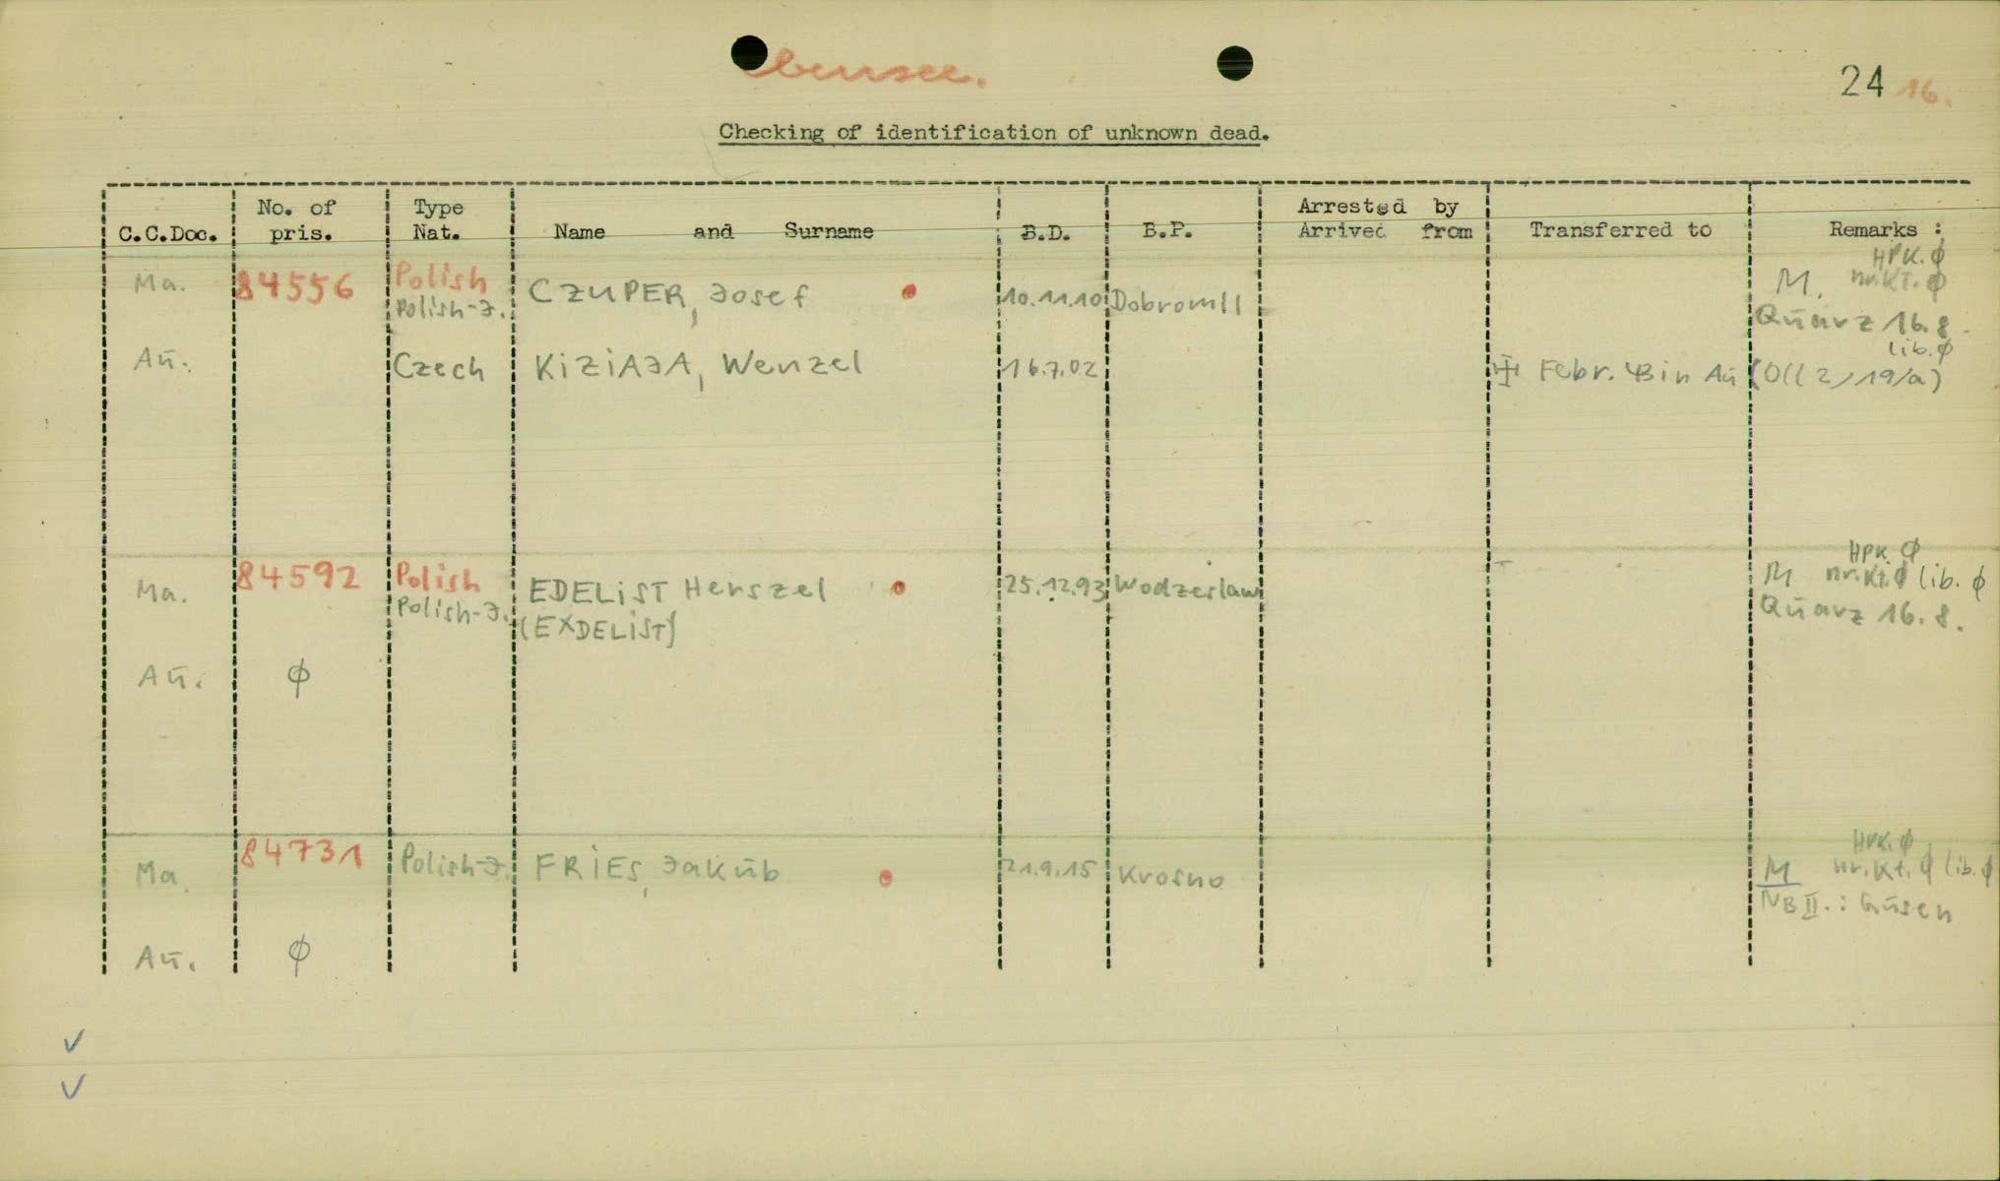 bensee.
24 16.
Checking of identification of unknown dead.
C.C.Doc. No. of pris. Type Nat. Name and Surname B.D. B.P. Arrested by Arrived from Transferred to Remarks :
HPK. ϕ
Ma. 84556 Polish CZUPER, Josef 10.11.10 Dobromil M. nr.Kt. ϕ
Polish-J. Quarz 16.8.
lib. ϕ
Au. Czech KiZiAJA, Wenzel 16.7.02 Febr. 43 in Au (Oll 2/19/a)
HPK ϕ
Ma. 84592 Polish EDELiST Herszel 25.12.93 Wodzeslaw M nr.Kt. ϕ lib. ϕ
Polish-J. (EXDELiST) Quarz 16.8.
Au. ϕ
HPK. ϕ
Ma. 84731 Polish-J. FRiES, Jakub 21.9.15 Krosno M nr.Kt. ϕ lib. ϕ
NB II.: Gusen
Au. ϕ